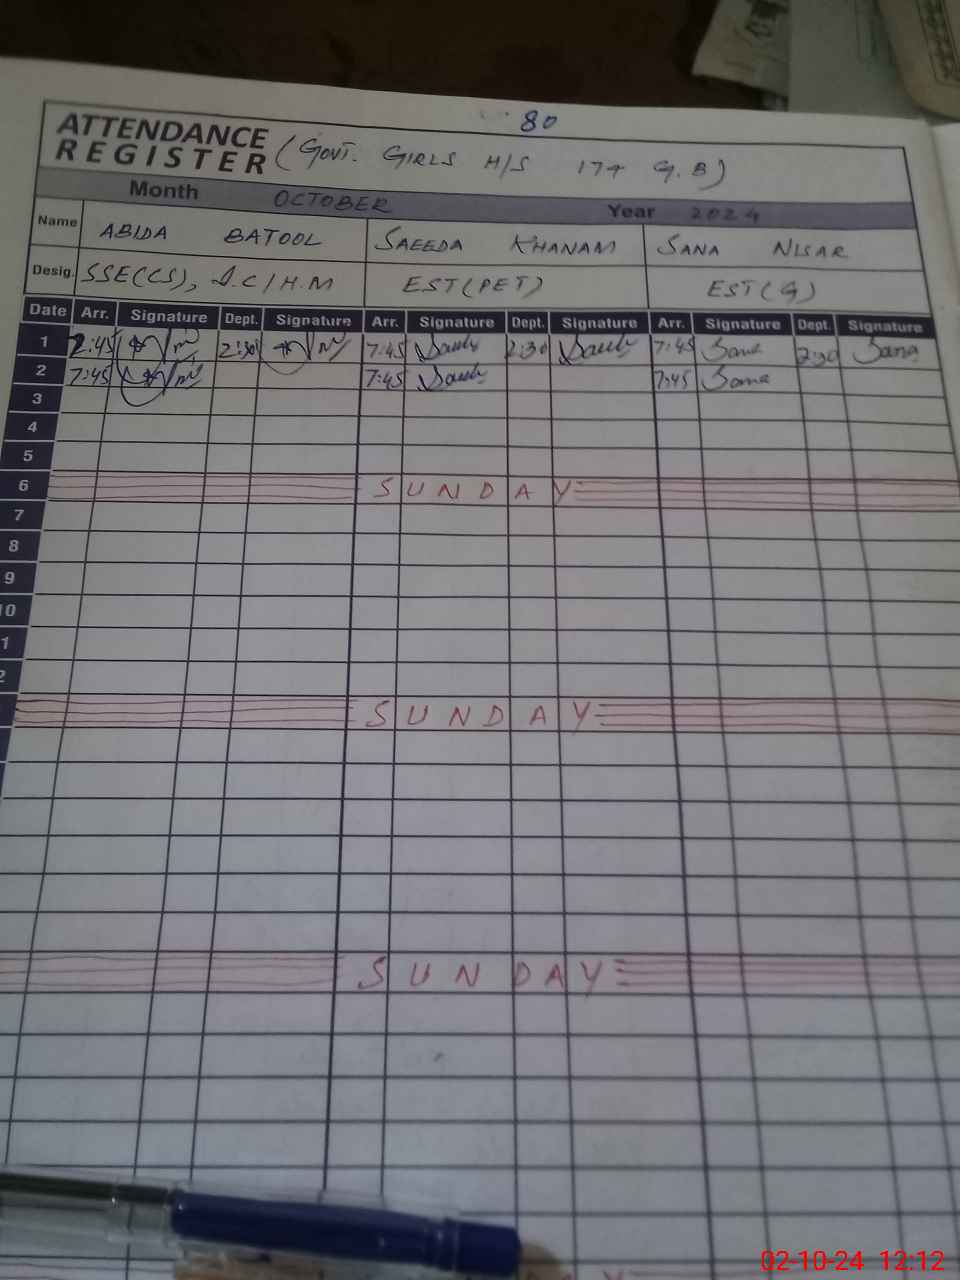 80
ATTENDANCE
REGISTER (GOVT. GIRLS H/S 174 G.B)
Month OCTOBER Year 2024
Name ABIDA BATOOL SAEEDA KHANAM SANA NISAR
Desig. SSE(CS), I.C/H.M EST(PET) EST(G)
Date Arr. Signature Dept. Signature Arr. Signature Dept. Signature Arr. Signature Dept. Signature
1 2:45 2:30 7:45 2:30 7:45 Sana 2:30 Sana
2 7:45 7:45 7:45 Sana
3
4
5
6 SUNDAY
7
8
9
10
1
2
SUNDAY
SUNDAY
02-10-24 12:12